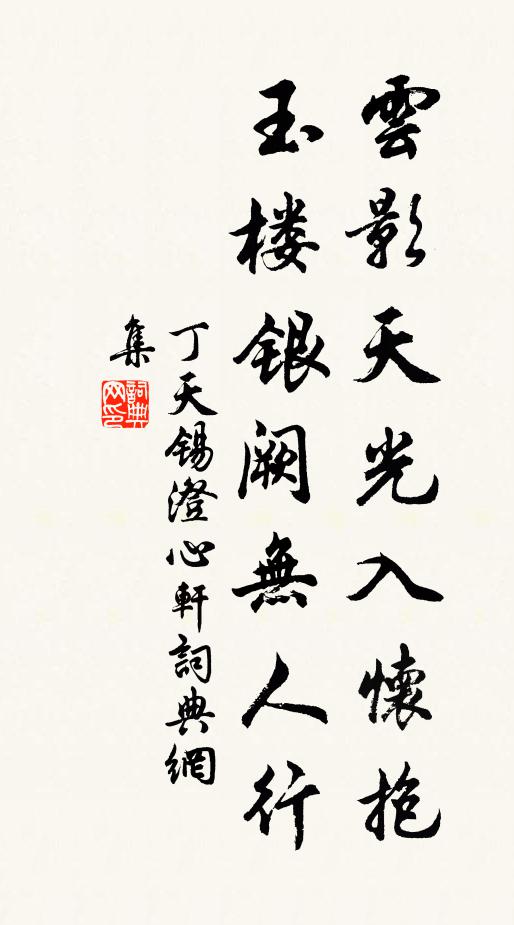 雲影天光入懷抱
玉楼銀阙無人行
丁天錫澄心軒詞典網
集
詞典
网印